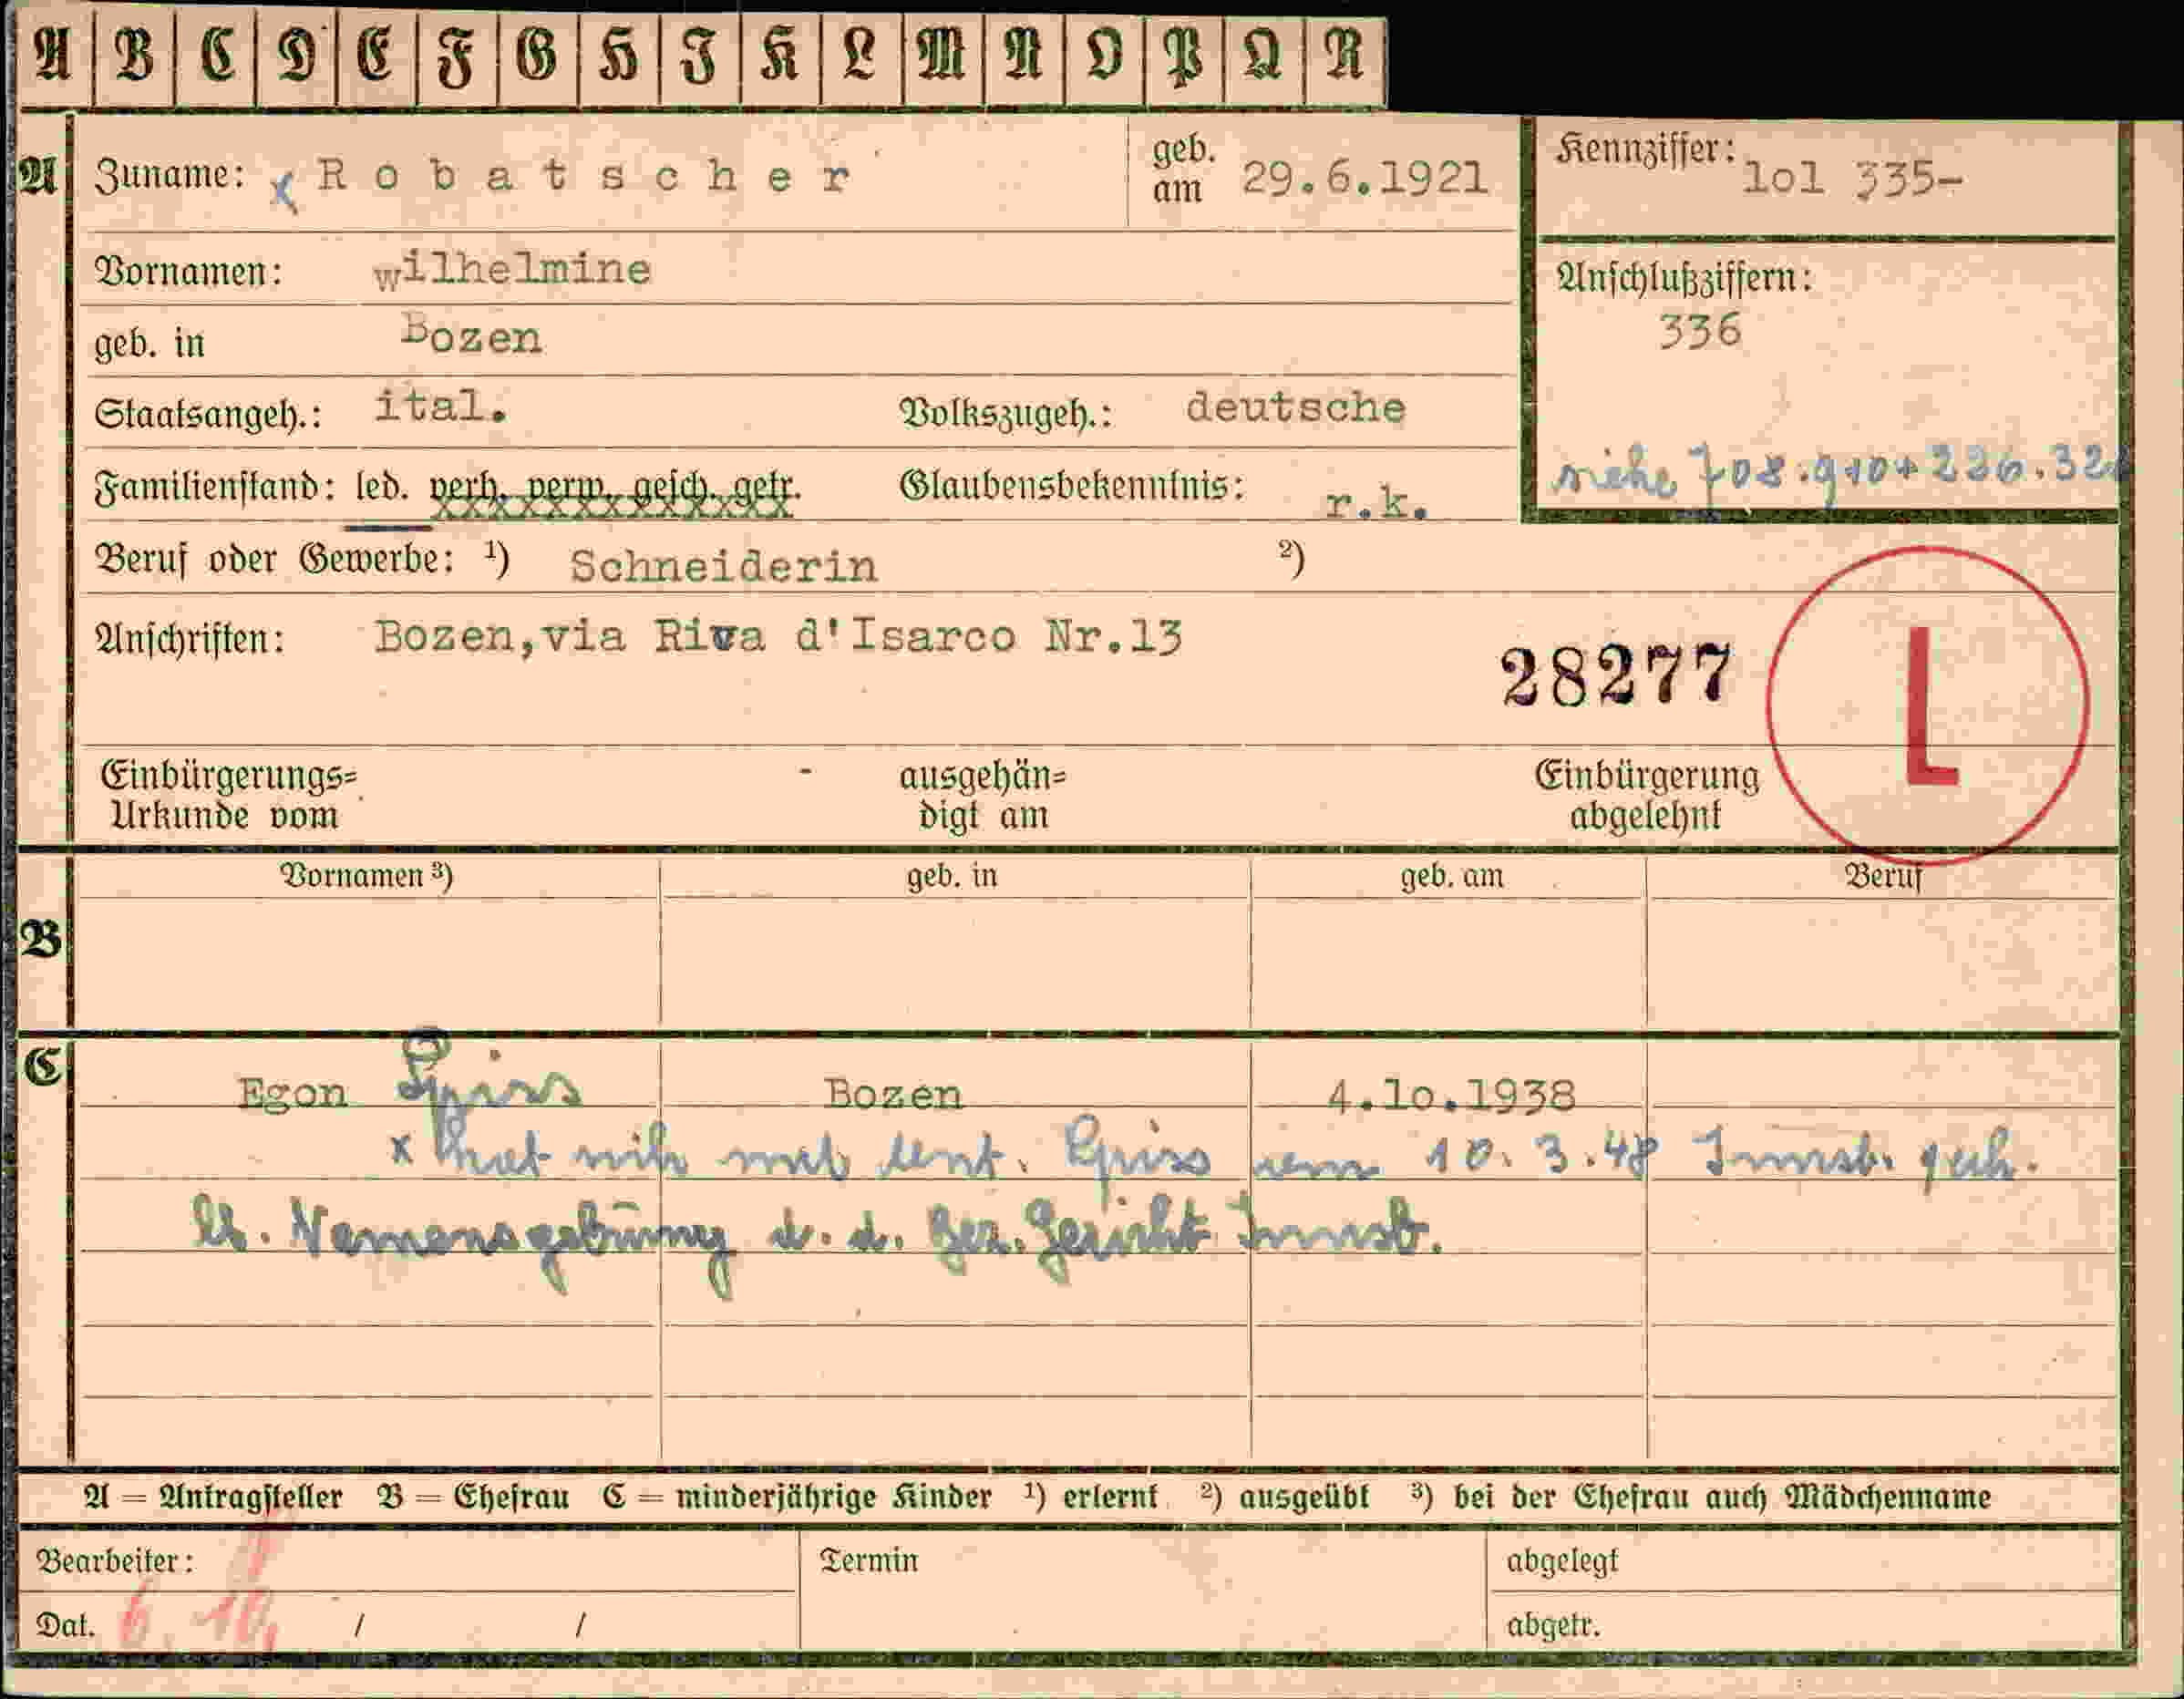 A B C D E F G H I K L M N O P Q R
A Zuname: x Robatscher geb. am 29.6.1921
Kennziffer: lol 335-
Vornamen: wilhelmine
Anschlußziffern:
336
geb. in Bozen
Staatsangeh.: ital. Volkszugeh.: deutsche
siehe 708.910+226.32
Familienstand: led. verh. verw. gesch. getr. Glaubensbekenntnis: r.k.
Beruf oder Gewerbe: ¹) Schneiderin ²)
Anschriften: Bozen,via Riva d'Isarco Nr.13
28277 L
Einbürgerungs= Urkunde vom - ausgehän= digt am Einbürgerung abgelehnt
Vornamen ³) geb. in geb. am Beruf
B
C
Egon Spiss Bozen 4.lo.1938
x hat sich mit Spiss am 10.3.48 Innsb.
lt. Namensgebung d. d. Bez. Gericht Innsb.
A = Antragsteller B = Ehefrau C = minderjährige Kinder ¹) erlernt ²) ausgeübt ³) bei der Ehefrau auch Mädchenname
Bearbeiter: Termin abgelegt
Dat. 6. 10, / / abgetr.